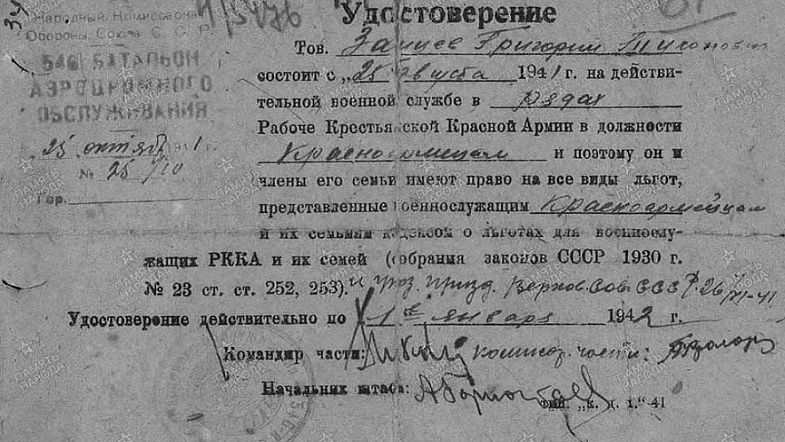 Народный Комиссариат
Обороны Союза С. С. Р.
540 БАТАЛЬОН
АЭРОДРОМНОГО
ОБСЛУЖИВАНИЯ
25 октяб 1941
№ 25/10
Гор.
Удостоверение
Тов. Зайцев Григорий Тихонович
состоит с „25 августа 1941 г. на действи-
тельной военной службе в рядах
Рабоче Крестьянской Красной Армии в должности
Красноармейцам и поэтому он и
члены его семьи имеют право на все виды льгот,
представленные военнослужащим Красноармейцам
и их семьям кодексом о льготах для военнослу-
жащих РККА и их семей (собрания законов СССР 1930 г.
№ 23 ст. ст. 252, 253). и през. Верхов Сов СССР 26/VI-41
Удостоверение действительно по 1 января 1942 г.
Командир части: комиссар части:
Начальник штаба:
тип. „к. д. 1."-41